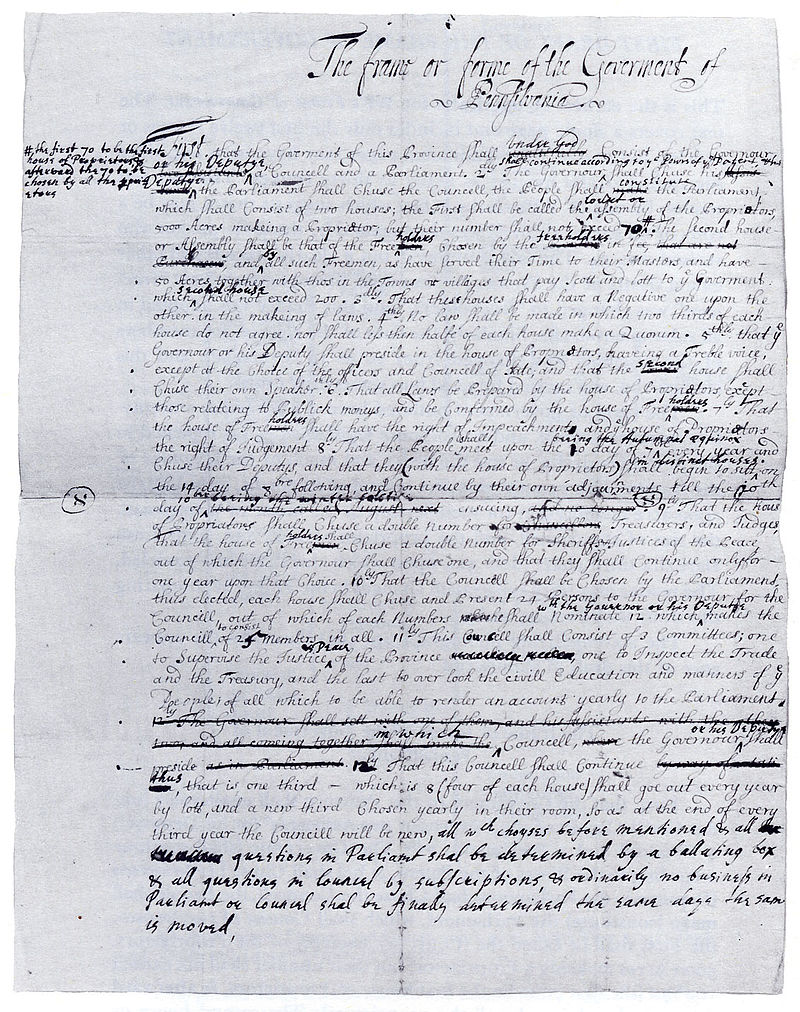 The frame or forme of the Goverment of
Pennsilvania
#, the first 70 to be the first
house of Proprietors &
afterward the 70 to be
chosen by all the
etors
under God
that the Goverment of this Province shall Consist of the Governour
or his Deputye shal continue according to ye
at Councell and a Parliament. 2dly The Governour shall Chuse his
Deputye constitute
the Parliament shall Chuse the Councell, the People shall Parliament
lower or
which shall Consist of two houses; the First shall be called the assembly of the Proprietors,
5000 Acres makeing a Proprietor; but their number shall not exceed 70 # The second house
holders freeholders
or Assembly shall be that of the Free Chosen by the
by
and all such Freemen, as have served their Time to their Masters, and have
50 Acres together with thos in the Towns or villages that pay Scott and lott to ye Goverment.
second house
which shall not exceed 200. 3dly That these houses shall have a Negative one upon the
other in the makeing of laws. 4thly No law shall be made in which two thirds of each
house do not agree. nor shall less then halfe of each house make a Quorum. 5thly that ye
Governour or his Deputy shall preside in the house of Proprietors, haveing a Treble voice,
second
except at the Choice of the officers and Councell of State, and that the house shall
Chuse their own Speaker. 6 That all Laws be Prepared by the house of Proprietors except
holders
those relating to Publick moneys, and be Confirmed by the house of Free 7ly That
holders
the house of Free shall have the right of Impeachments and house of Proprietors
shall being the Autumnal equinox
the right of Judgement 8ly That the People meet upon the 10 day of 7 every year and
in distinct houses
Chuse their Deputys, and that they (with the house of Proprietors) shall begin to sitt on
the 14 day of 8bre following, and Continue by their own adjournments till the 10th
10 being the winter solstice
day of ensuing, 9ly That the hous
of Propriators shall Chuse a double number for Treasurers, and Judges,
holders shall
that the house of Free Chuse a double Number for Sheriffs & Justices of the Peace
out of which the Governour shall Chuse one, and that they shall Continue only for
one year upon that Choice. 10ly That the Councell shall be Chosen by the Parliament,
thus elected, each house shall Chuse and Present 24 Persons to the Governour for the
wth the Governor or his Deputye
Councill out of which of each Numbers he shall Nominate 12 which makes the
to consist
Councill of 25 Members in all. 11ly This Councell shall Consist of 3 Committees; one
& Peace
to Supervise the Justice of the Province one to Inspect the Trade
and the Treasury, and the last to over look the civill Education and manners of ye
People; of all which to be able to render an account yearly to the Parliament
12ly The Governour shall sett with one of them, and his assistants with the other
in which or his Deputye
two, and all comeing together shall make the Councell, where the Governour shall
preside as in Parliament. 12ly That this Councell shall Continue
thus
that is one third – which is 8 (four of each house) shall goe out every year
by lott, and a new third Chosen yearly in their room, so as at the end of every
third year the Councill will be new, all wch choyses before mentioned & all
questions in Parliamt shal be determined by a ballating box
& all questions in Councel by subscriptions, & ordinarily no business in
Parliamt or Councel shal be finally determined the same daye the sam
is moved,